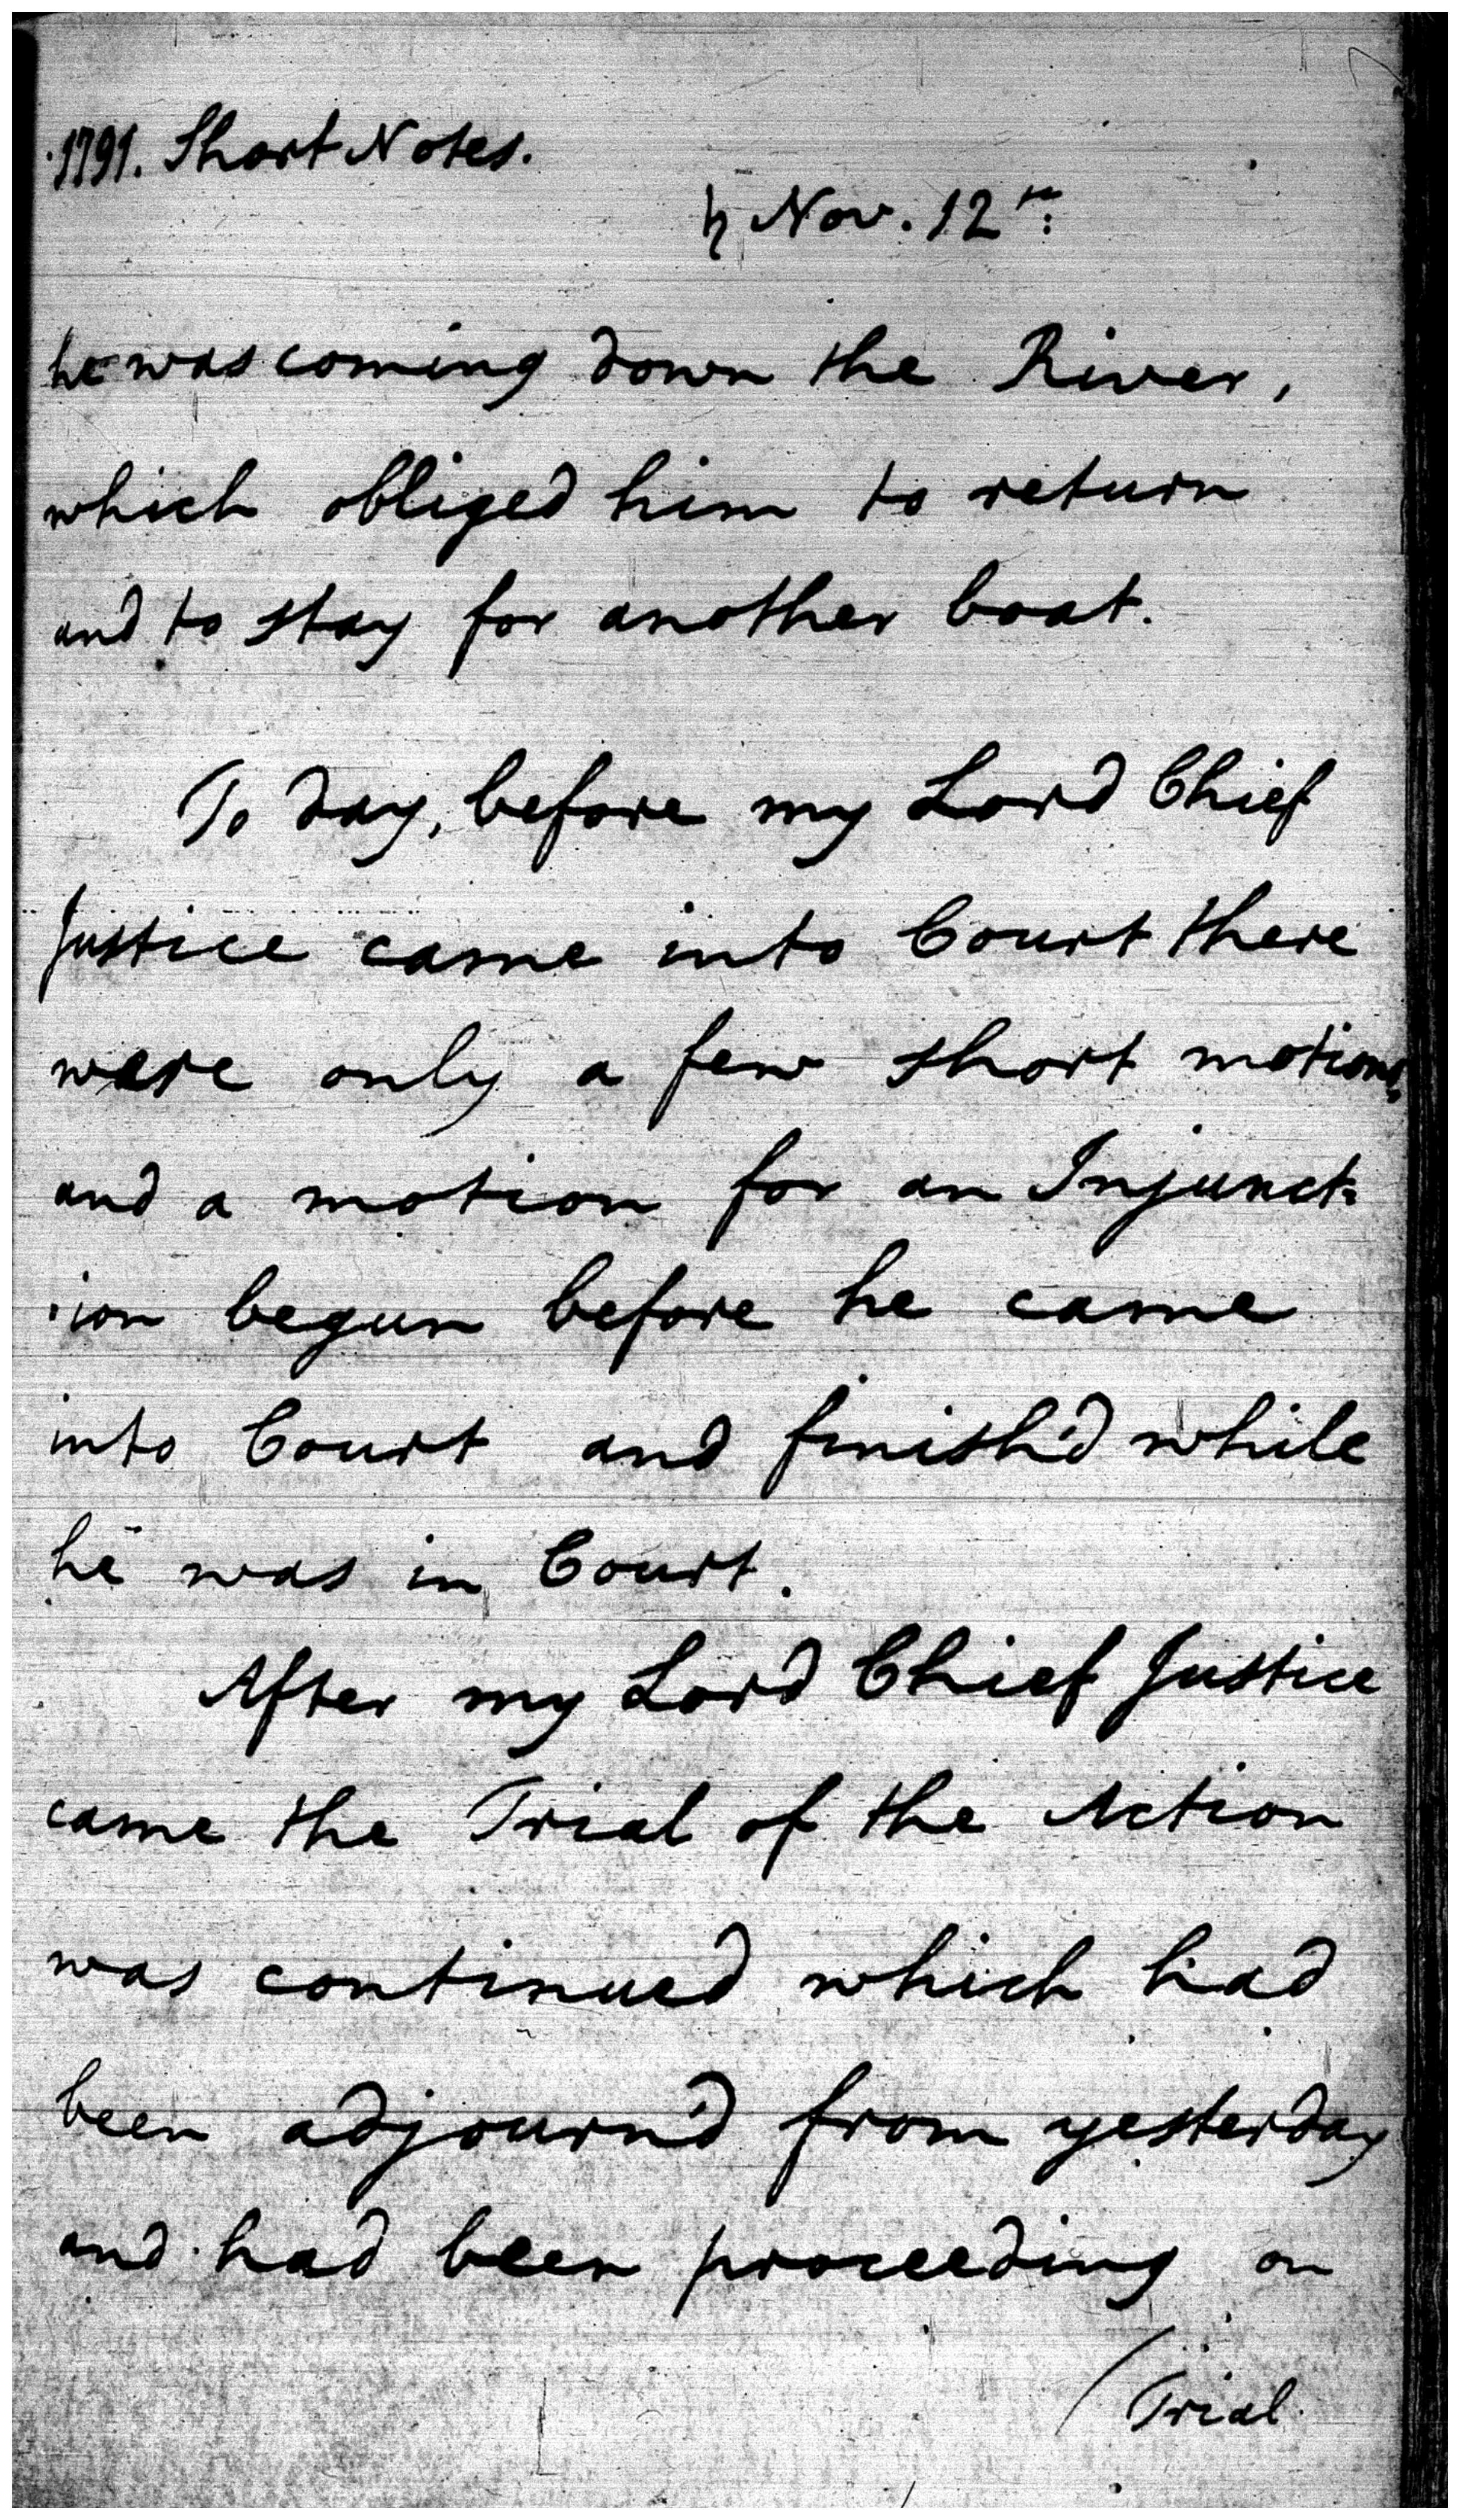 1791. Short Notes.
♄ Nov. 12th:
he was coming down the River,
which obliged him to return
and to stay for another boat.
To day, before my Lord Chief
Justice came into Court there
were only a few short motions,
and a motion for an Injunct=
:ion begun before he came
into Court and finish'd while
he was in Court.
After my Lord Chief Justice
came the Trial of the Action
was continued which had
been adjourn'd from yesterday
and had been proceeding on
(Trial